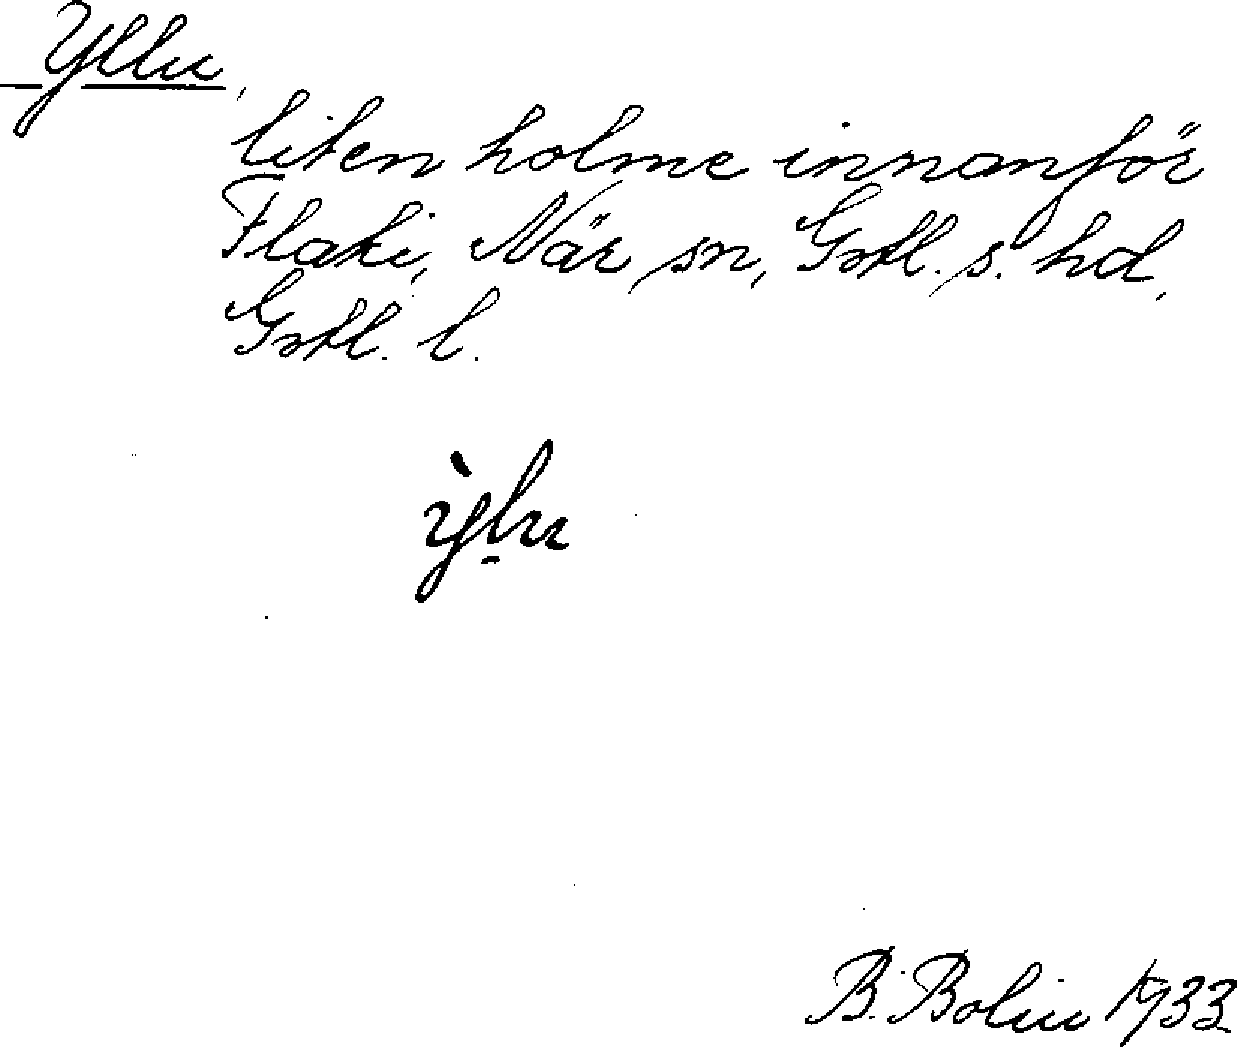 Yllu,
liten holme innanför
Flaki, När sn, Gotl. s. hd,
Gotl. l.
ỳl̠u
B. Bolin 1933